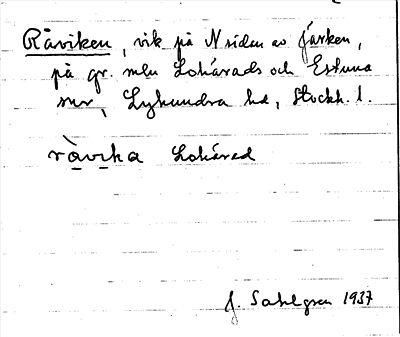 Råviken, vik på N sidan av Järken,
på gr. mln Lohärads och Estuna
snr, Lyhundra hd, Stockh. l.
ràvika Lohärad
J. Sahlgren 1937